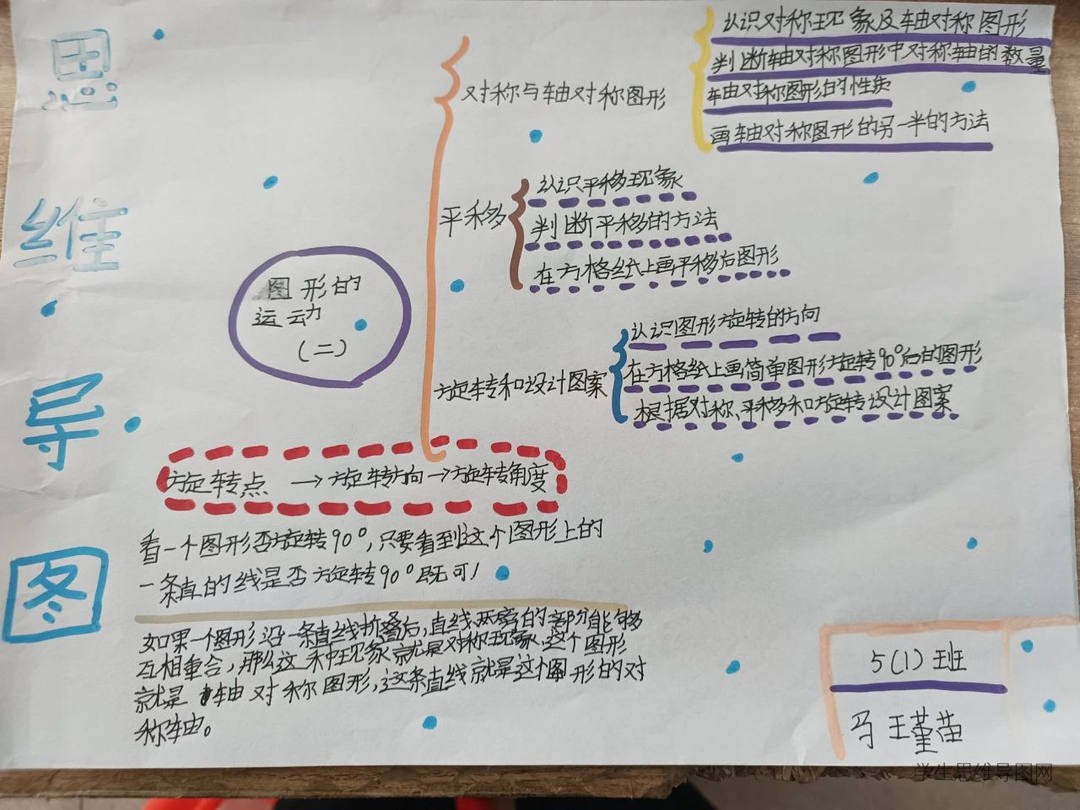 思
维
导
图
图形的
运动
(二)
对称与轴对称图形
认识对称现象及轴对称图形
判断轴对称图形中对称轴的数量
轴对称图形的性质
画轴对称图形的另一半的方法
平移
认识平移现象
判断平移的方法
在方格纸上画平移后图形
旋转和设计图案
认识图形旋转的方向
在方格纸上画简单图形旋转90°后的图形
根据对称、平移和旋转设计图案
旋转点 → 旋转方向 → 旋转角度
看一个图形否旋转90°,只要看到这个图形上的
一条直的线是否旋转90°既可!
如果一个图形沿一条直线折叠后,直线两旁的部分能够
互相重合,那么这种现象就是对称现象,这个图形
就是轴对称图形,这条直线就是这个图形的对
称轴。
5(1)班
马王堇苗
学生思维导图网